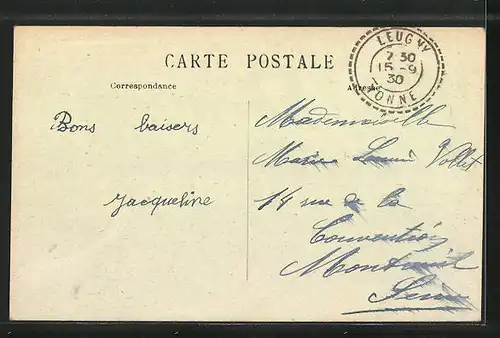 CARTE POSTALE
LEUGNY
7 30
15 -9
30
YONNE
Correspondance
Adresse
Bons baisers
Jacqueline
Mademoiselle
14 rue de la
Convention
Montreuil
Seine